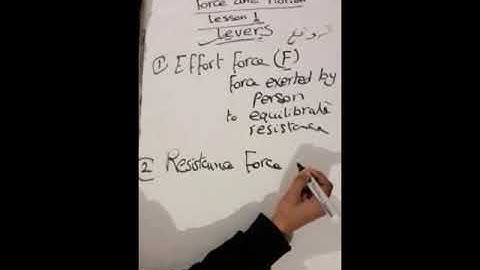 Force and Motion
Lesson 1
Levers روافع
① Effort Force (F)
Force exerted by
Person
to equilibrate
resistance
② Resistance Force